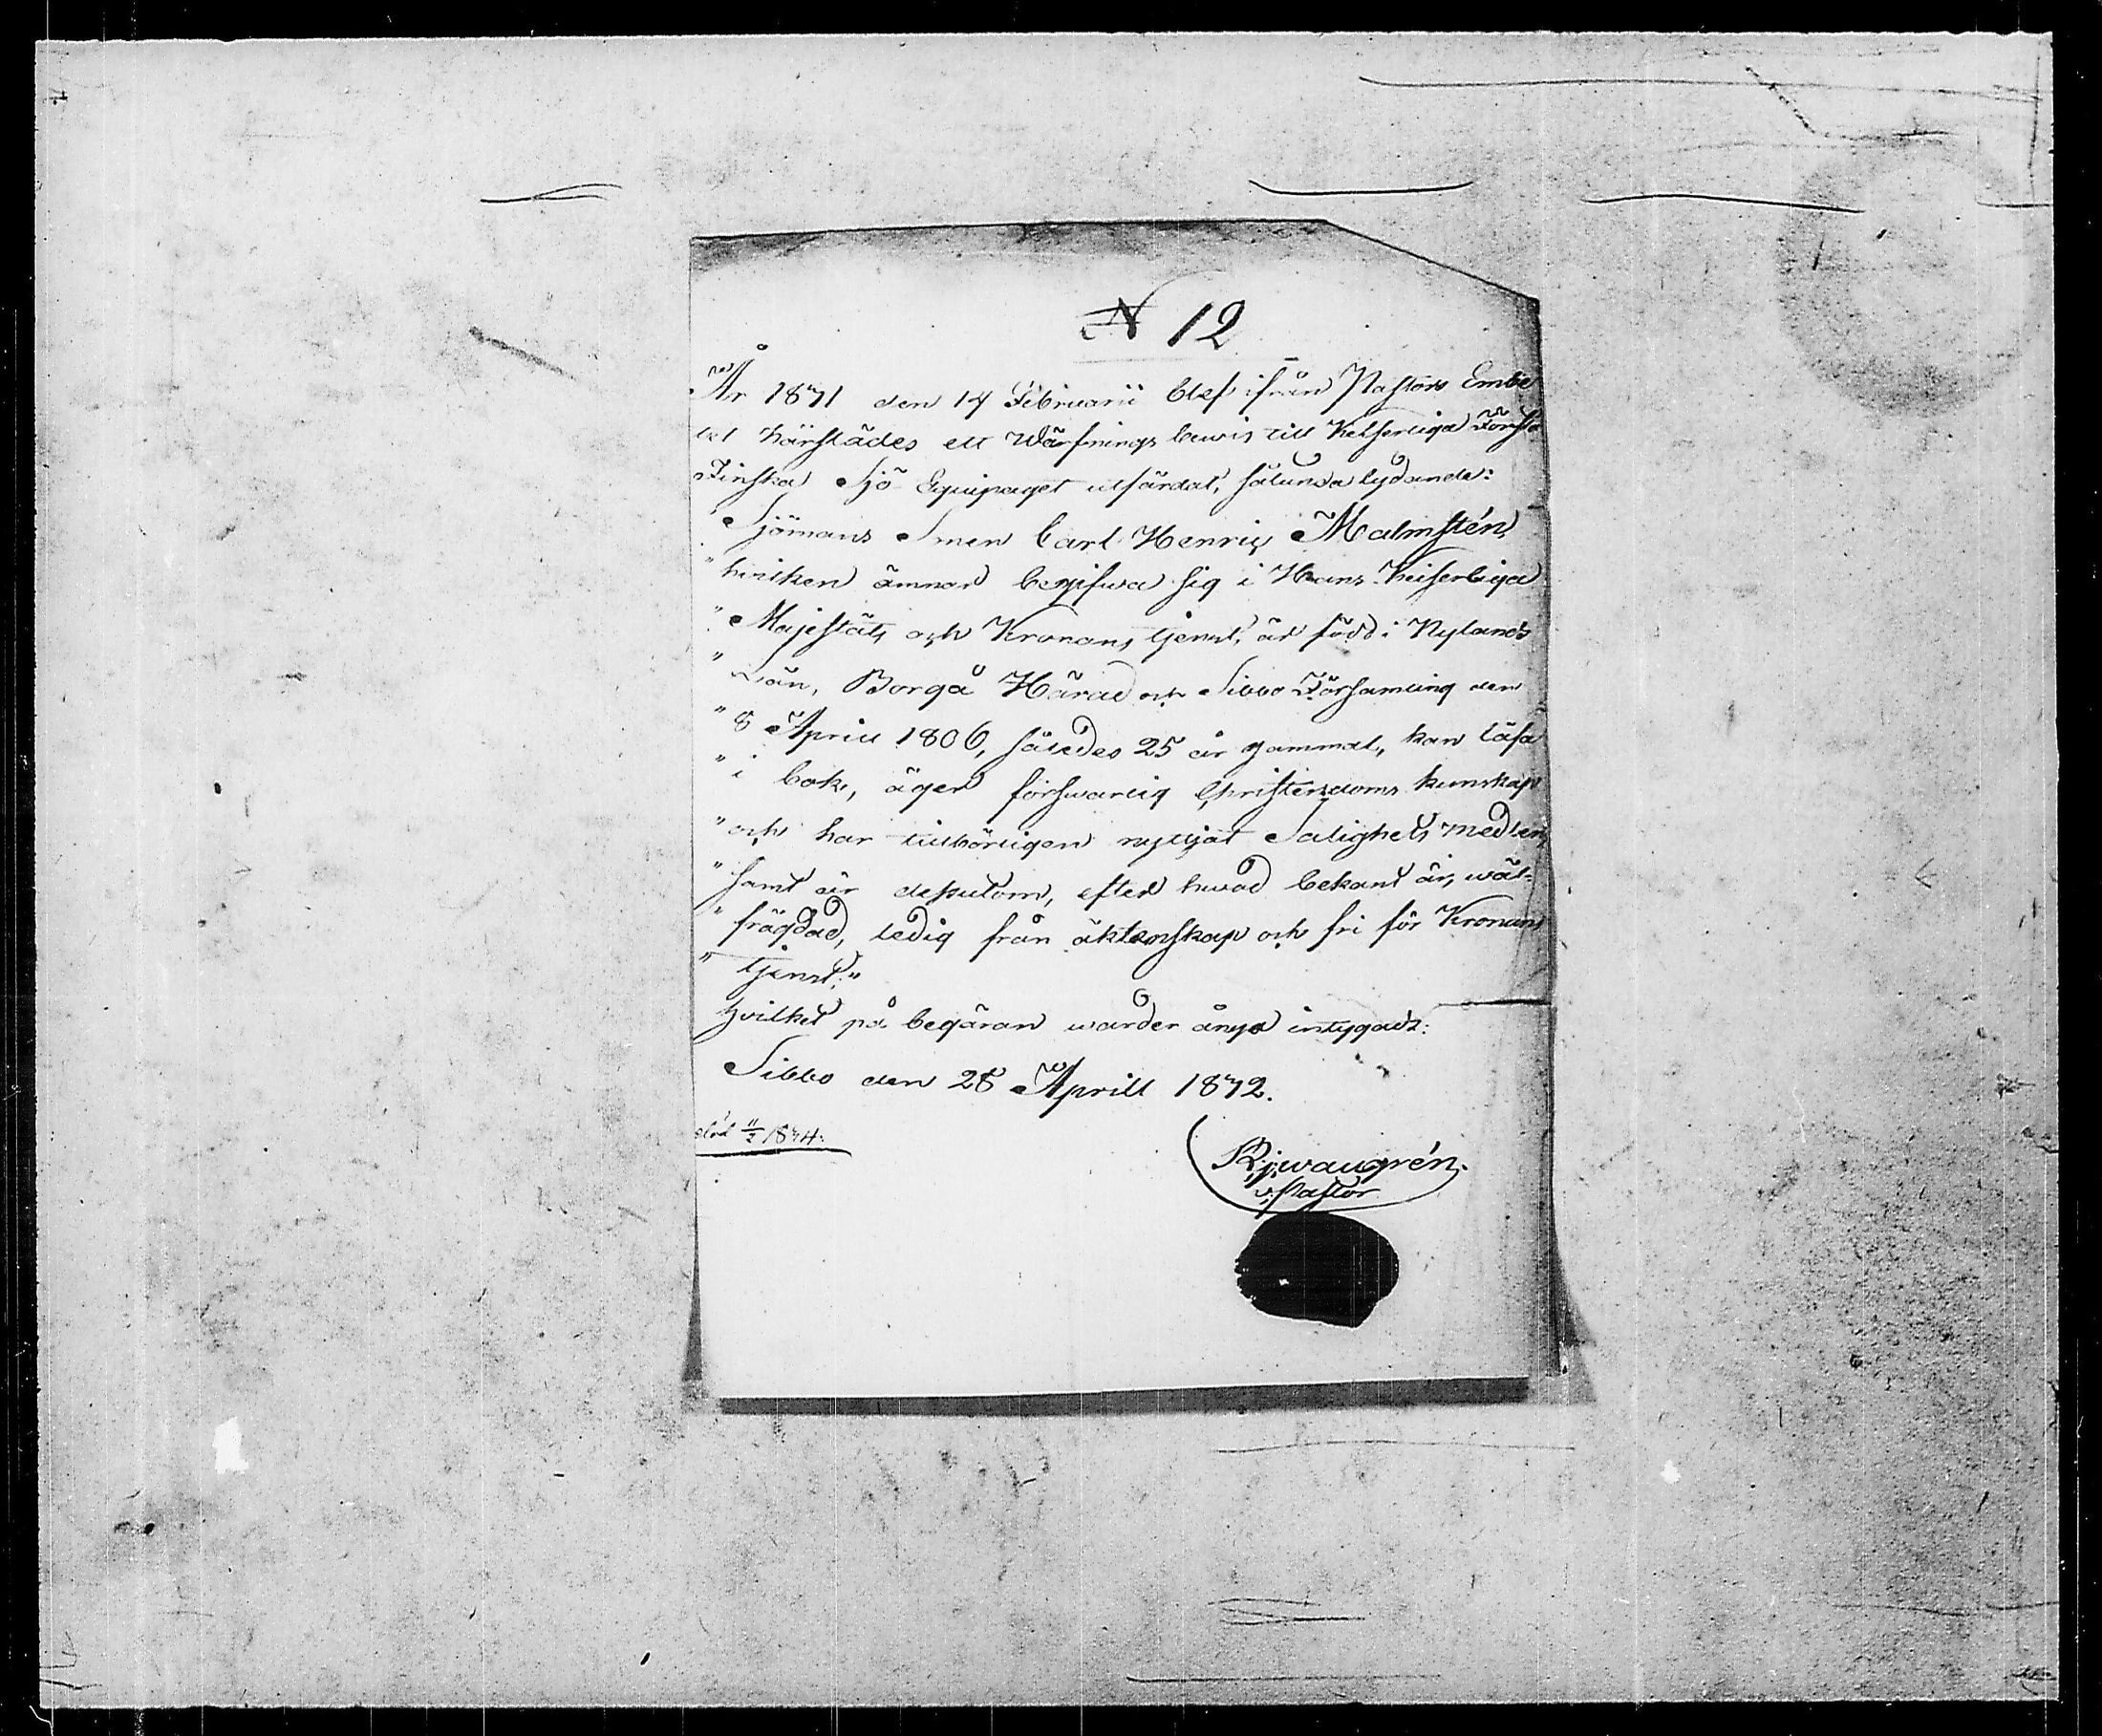 N 12
År 1831 den 14 Februarii blef ifrån Pastors Embe
tet härstädes ett Wärfnings bewis till Keiserliga Första
Finska Sjö Equipaget utfärdat, sålunda lydande:
Sjömans Ämnen Carl Henric Malmstén,
" hvilken ämnar begifwa sig i Hans Keiserliga
" Majestäts och Kronans tjenst, är född i Nylands
" Län, Borgå Härad och Sibbo Församling den
" 8 Aprill 1806, således 25 år gammal, kan läsa
" i bok, äger förswarlig Christendoms kunskap
" och har tillbörligen nyttjat Salighets medlen,
" samt är dessutom, efter hwad bekant är, wäl-
" frägdad, ledig från äktenskap och fri för Kronans
" tjenst."
hvilket på begäran warder ånyo intygadt:
Sibbo den 28 Aprill 1832.
död 11/2 1834.
v. Pastor